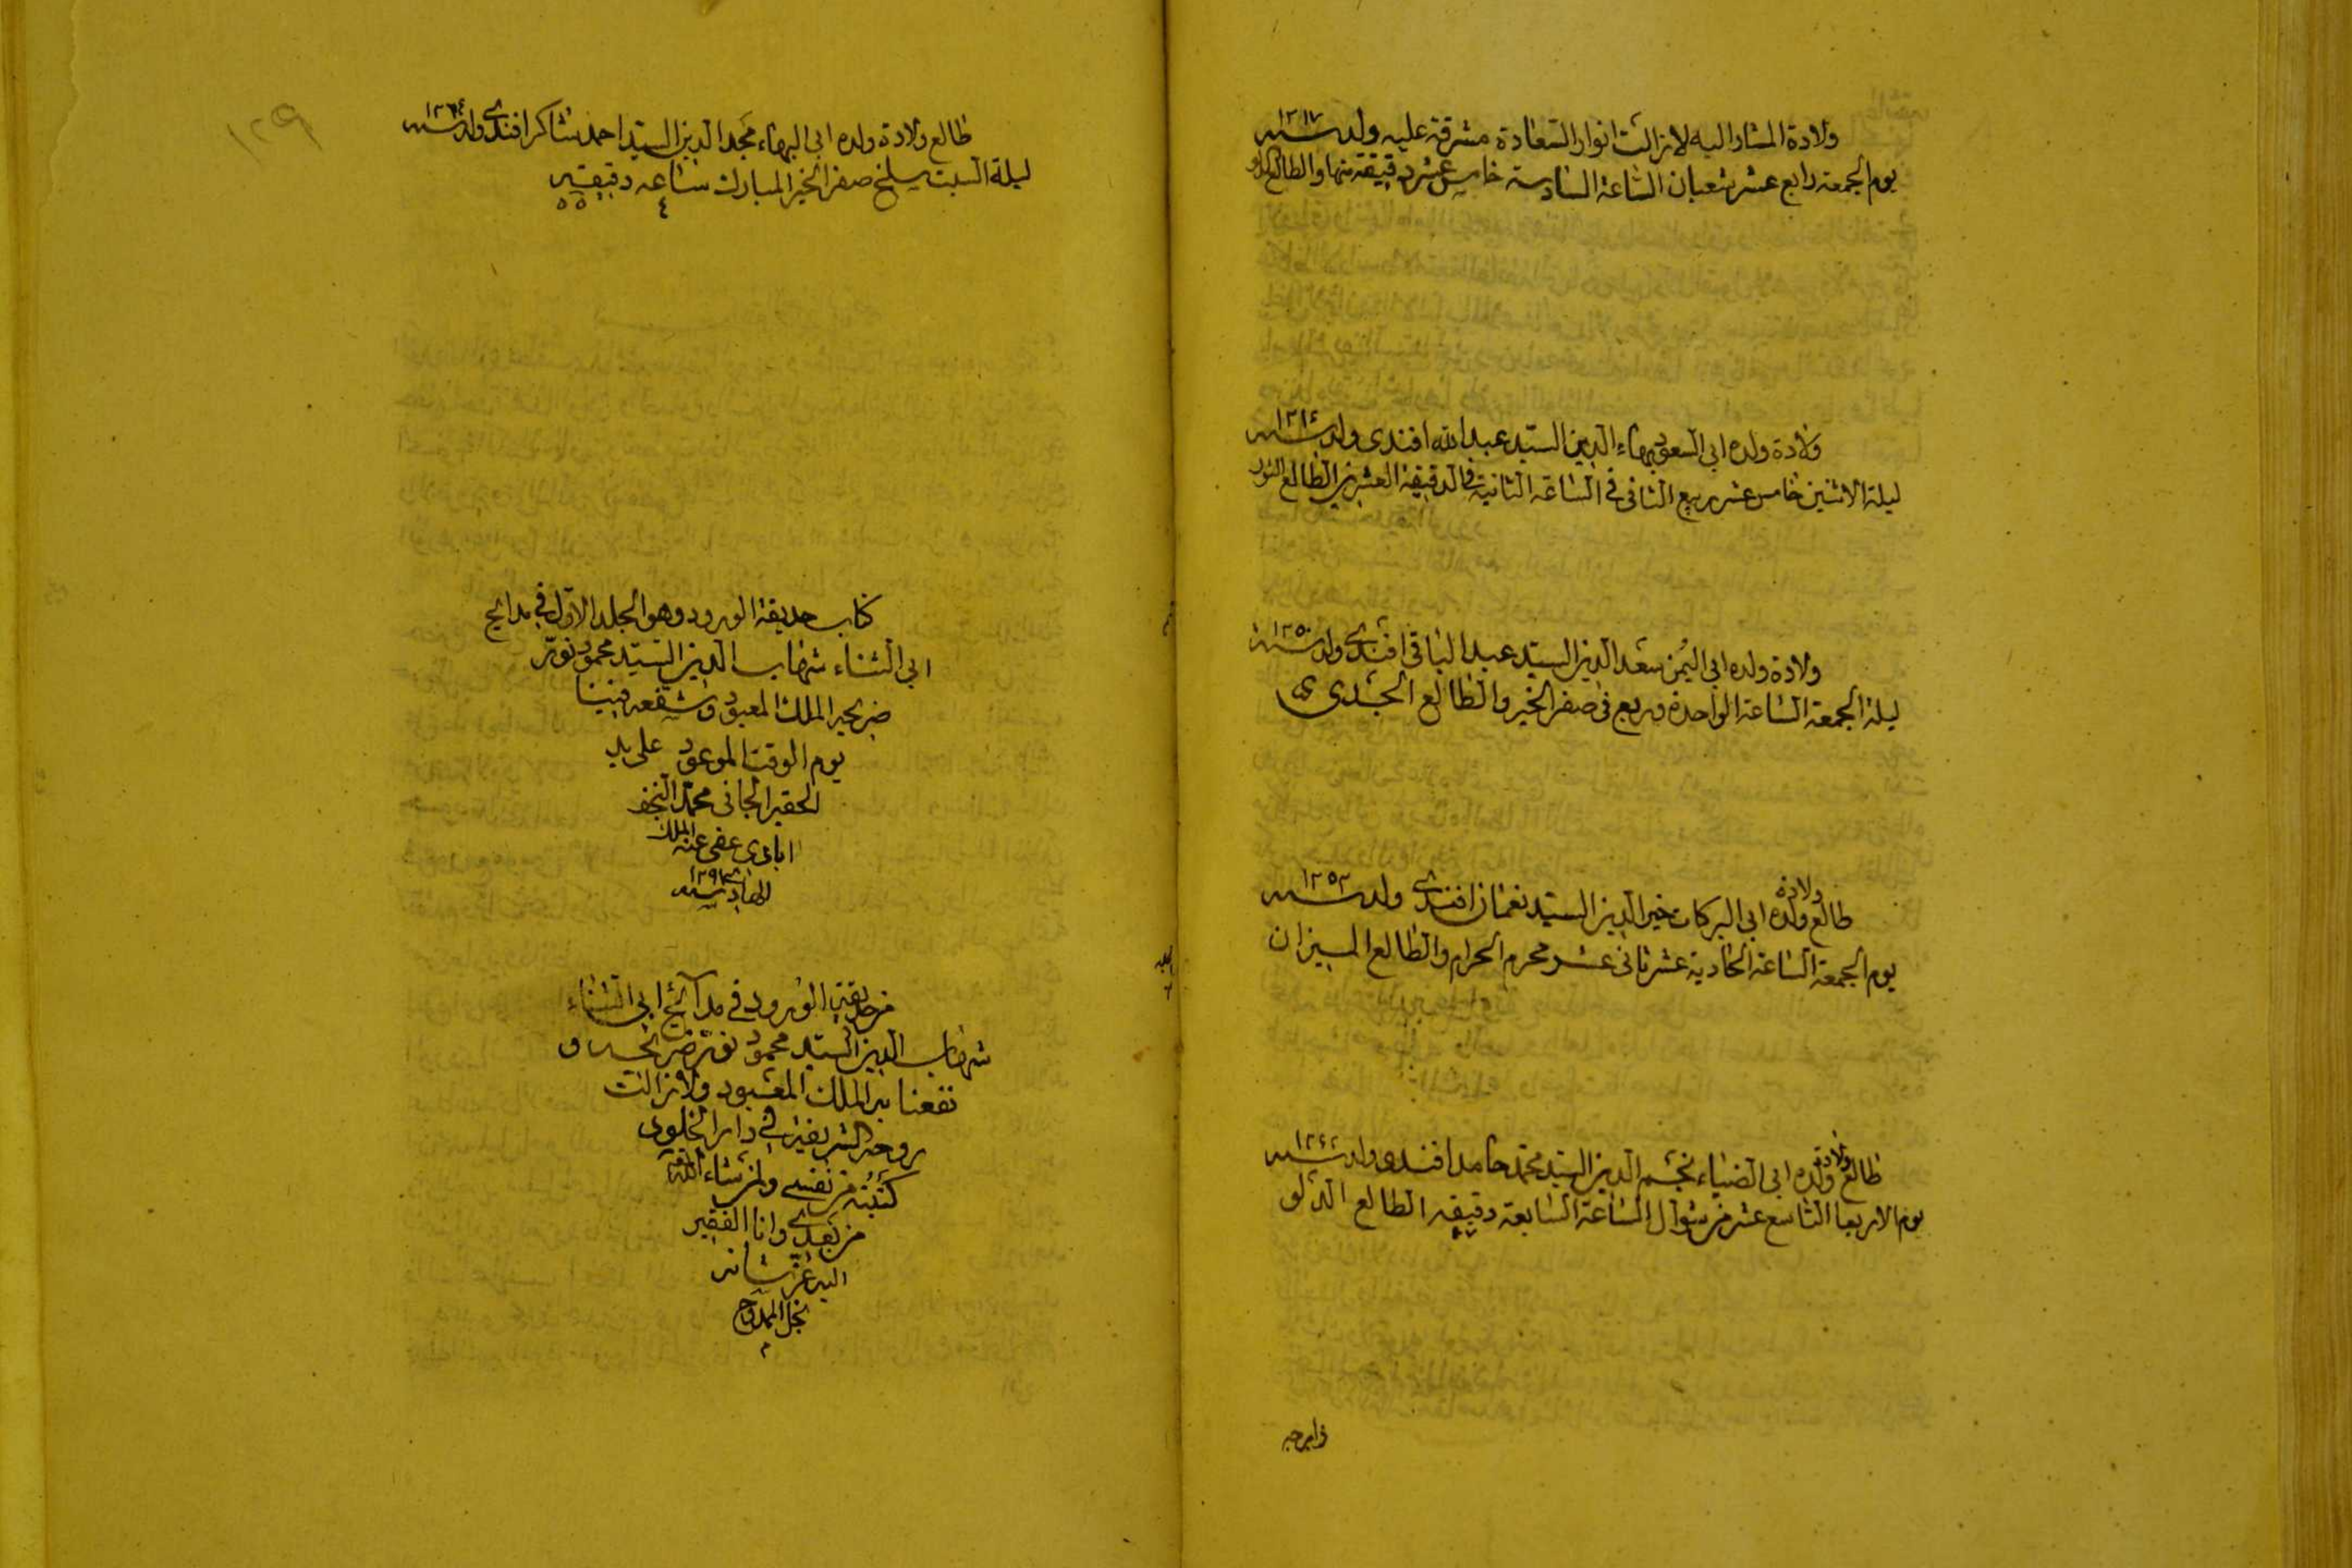 ولادة المشار اليه لا زالت انوار السعادة مشرقة عليه ولد سنه ١٢١٧
يوم الجمعة رابع عشر شعبان الساعة السادسة خامس عشر دقيقة منها والطالع الدلو
ولادة ولده ابى السعود بهاء الدين السيد عبد الله افندى ولد سنه
ليلة الاثنين خامس عشر ربيع الثانى فى الساعة الثانية فى الدقيقة العشرين الطالع الثور
ولادة ولده ابى اليمن سعد الدين السيد عبد الباقى افندى ولد سنه ١٢٥٠
ليلة الجمعة الساعة الواحدة وربع فى صفر الخير والطالع الجدى
طالع ولادة ولده ابى البركات خير الدين السيد نعمان افندى ولد سنه ١٢٥٢
يوم الجمعة الساعة الحادية عشر ثانى عشر محرم الحرام والطالع الميزان
طالع ولادة ولده ابى الضياء نجم الدين السيد محمد حامد افندى ولد سنه
يوم الاربعا التاسع عشر من شوال الساعة السابعة دقيقه الطالع الدلو
١٢٩
طالع ولادة ولده ابى البهاء مجد الدين السيد احمد شاكر افندى ولد سنه ١٢٦٤
ليلة السبت سلخ صفر الخير المبارك ساعه ٤ دقيقه ٥٥
كتاب حديقة الورود وهو الجلد الاول فى مدايح
ابى الثناء شهاب الدين السيد محمود نور
ضريحه الملك المعبود وشفعه فينا
يوم الوقت الموعود على يد
الحقير الجانى محمد النجف
ابادى عفى عنه الملك
الهادى سنه
من حديقة الورود فى مدائح ابى الثناء
شهاب الدين السيد محمود نور ضريحه و
نفعنا به الملك المعبود ولا زالت
روحه الشريفة فى دار الخلود
كتبته من نفسى ولمن شاء الله
من بعدى وانا الفقير
اليه عز شانه
نجل الممدوح